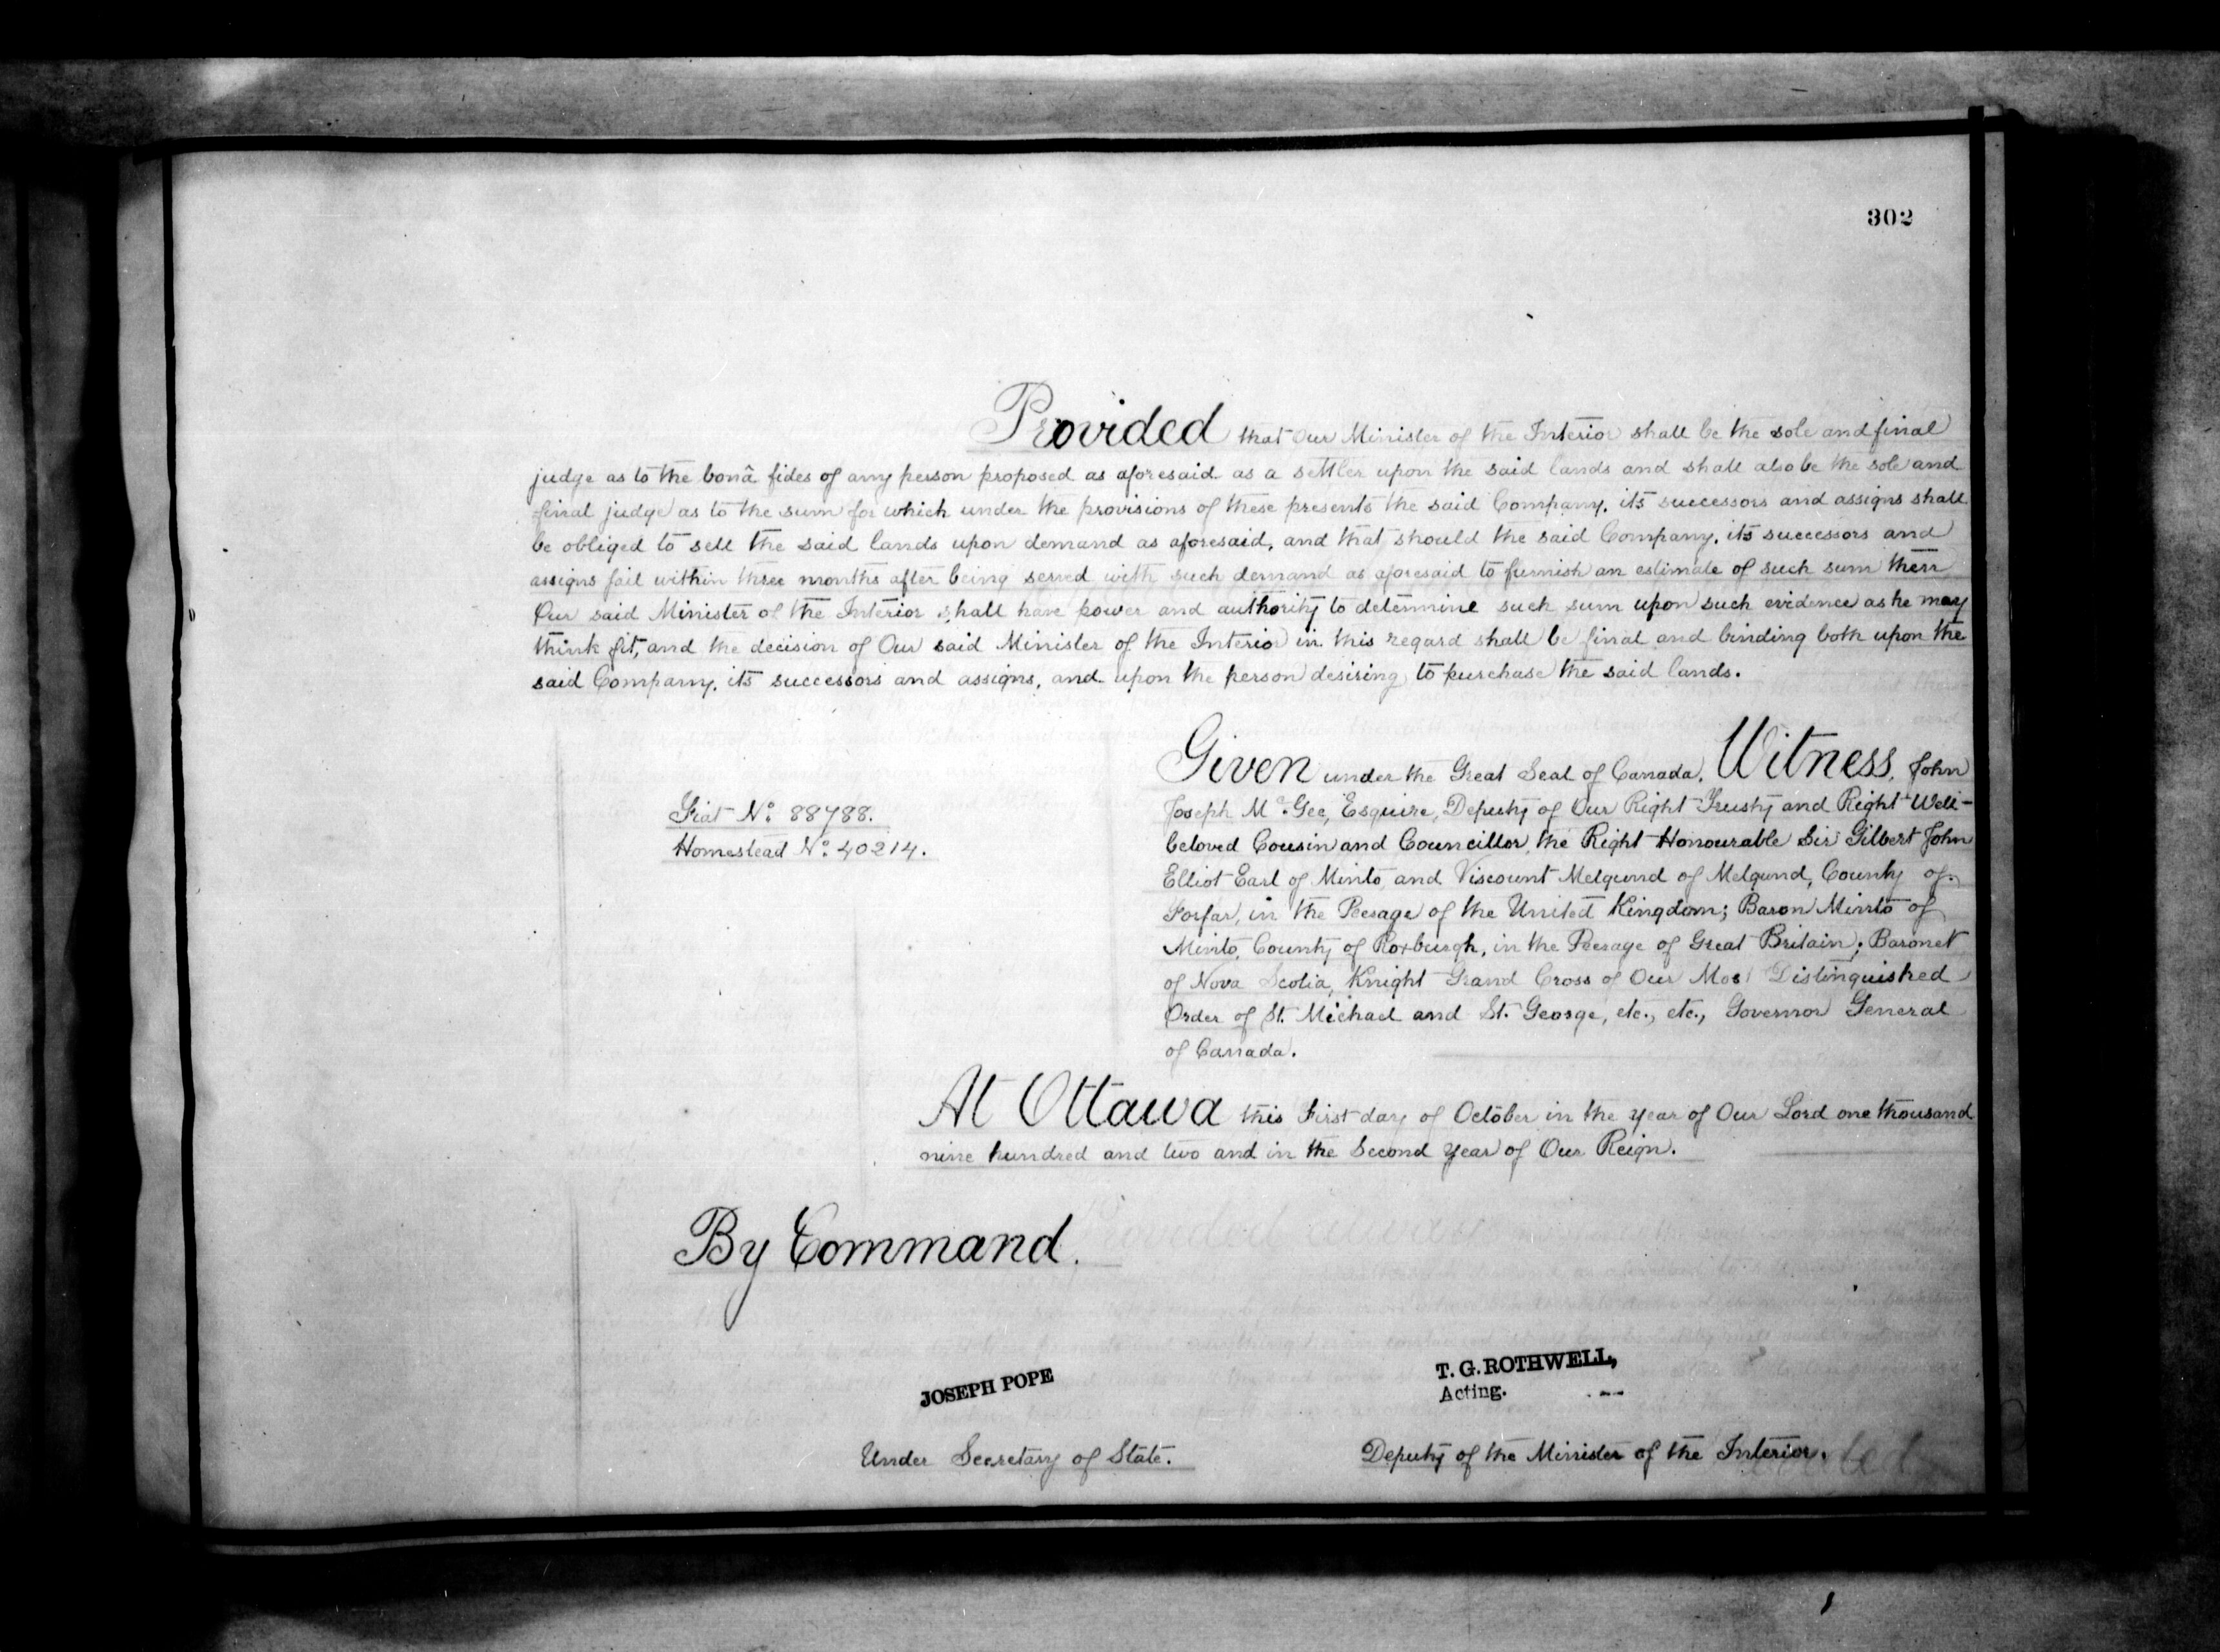 302
Provided that Our Minister of the Interior shall be the sole and final
judge as to the bonâ fides of any person proposed as aforesaid as a settler upon the said lands and shall also be the sole and
final judge as to the sum for which under the provisions of these presents the said Company, its successors and assigns shall
be obliged to sell the said lands upon demand as aforesaid, and that should the said Company, its successors and
assigns fail within three months after being served with such demand as aforesaid to furnish an estimate of such sum then
Our said Minister of the Interior shall have power and authority to determine such sum upon such evidence as he may
think fit, and the decision of Our said Minister of the Interior in this regard shall be final and binding both upon the
said Company, its successors and assigns, and upon the person desiring to purchase the said lands.
Given under the Great Seal of Canada. Witness, John
Joseph McGee, Esquire, Deputy of Our Right Trusty and Right Well-
beloved Cousin and Councillor, the Right Honourable Sir Gilbert John
Elliot Earl of Minto and Viscount Melgund of Melgund, County of
Forfar, in the Peerage of the United Kingdom; Baron Minto of
Minto, County of Roxburgh, in the Peerage of Great Britain; Baronet
of Nova Scotia, Knight Grand Cross of Our Most Distinguished
Order of St. Michael and St. George, etc., etc., Governor General
of Canada.
Fiat No. 88788.
Homestead No. 40214.
At Ottawa this First day of October in the year of Our Lord one thousand
nine hundred and two and in the Second year of Our Reign.
By Command.
JOSEPH POPE
Under Secretary of State.
T. G. ROTHWELL,
Acting.
Deputy of the Minister of the Interior.